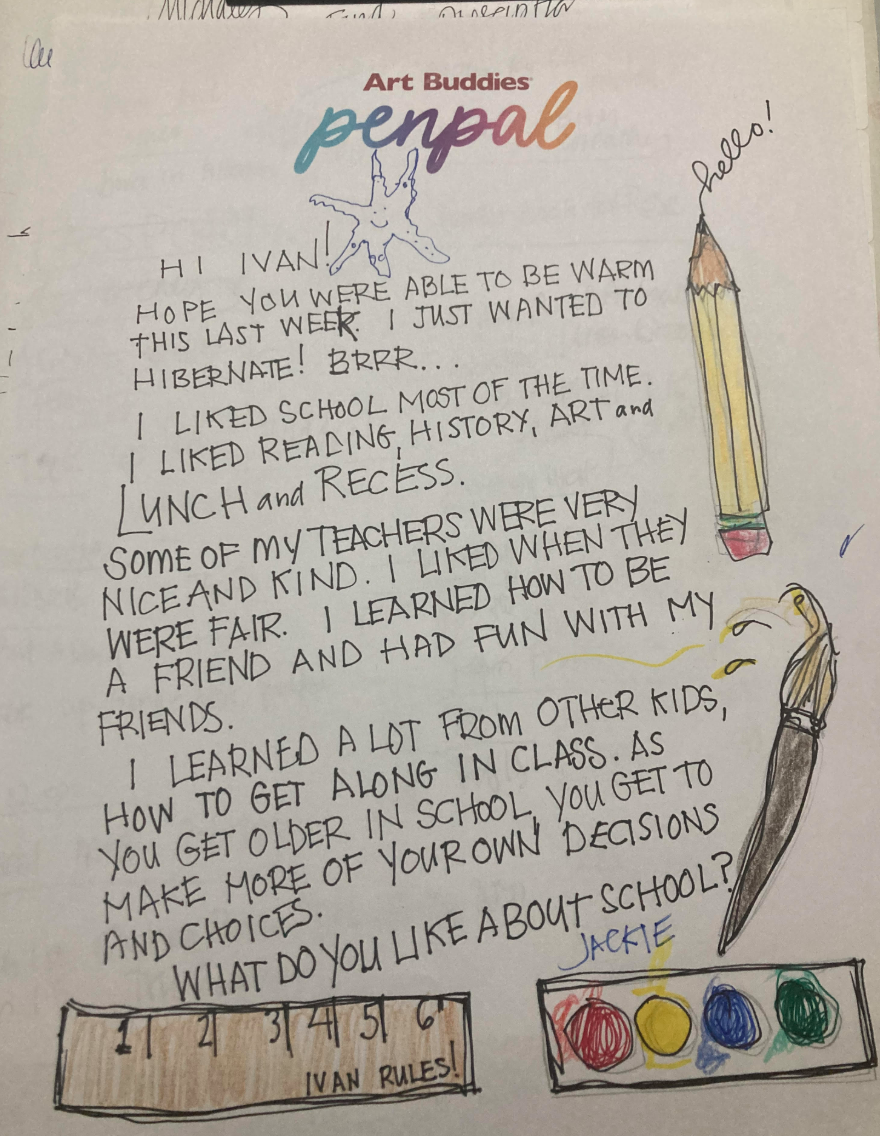 Art Buddies
penpal
hello!
HI IVAN!
HOPE YOU WERE ABLE TO BE WARM
THIS LAST WEEK. I JUST WANTED TO
HIBERNATE! BRRR...
I LIKED SCHOOL MOST OF THE TIME.
I LIKED READING, HISTORY, ART and
LUNCH and RECESS.
SOME OF MY TEACHERS WERE VERY
NICE AND KIND. I LIKED WHEN THEY
WERE FAIR. I LEARNED HOW TO BE
A FRIEND AND HAD FUN WITH MY
FRIENDS.
I LEARNED A LOT FROM OTHER KIDS,
HOW TO GET ALONG IN CLASS. AS
YOU GET OLDER IN SCHOOL, YOU GET TO
MAKE MORE OF YOUR OWN DECISIONS
AND CHOICES.
WHAT DO YOU LIKE ABOUT SCHOOL?
JACKIE
1 2 3 4 5 6"
IVAN RULES!